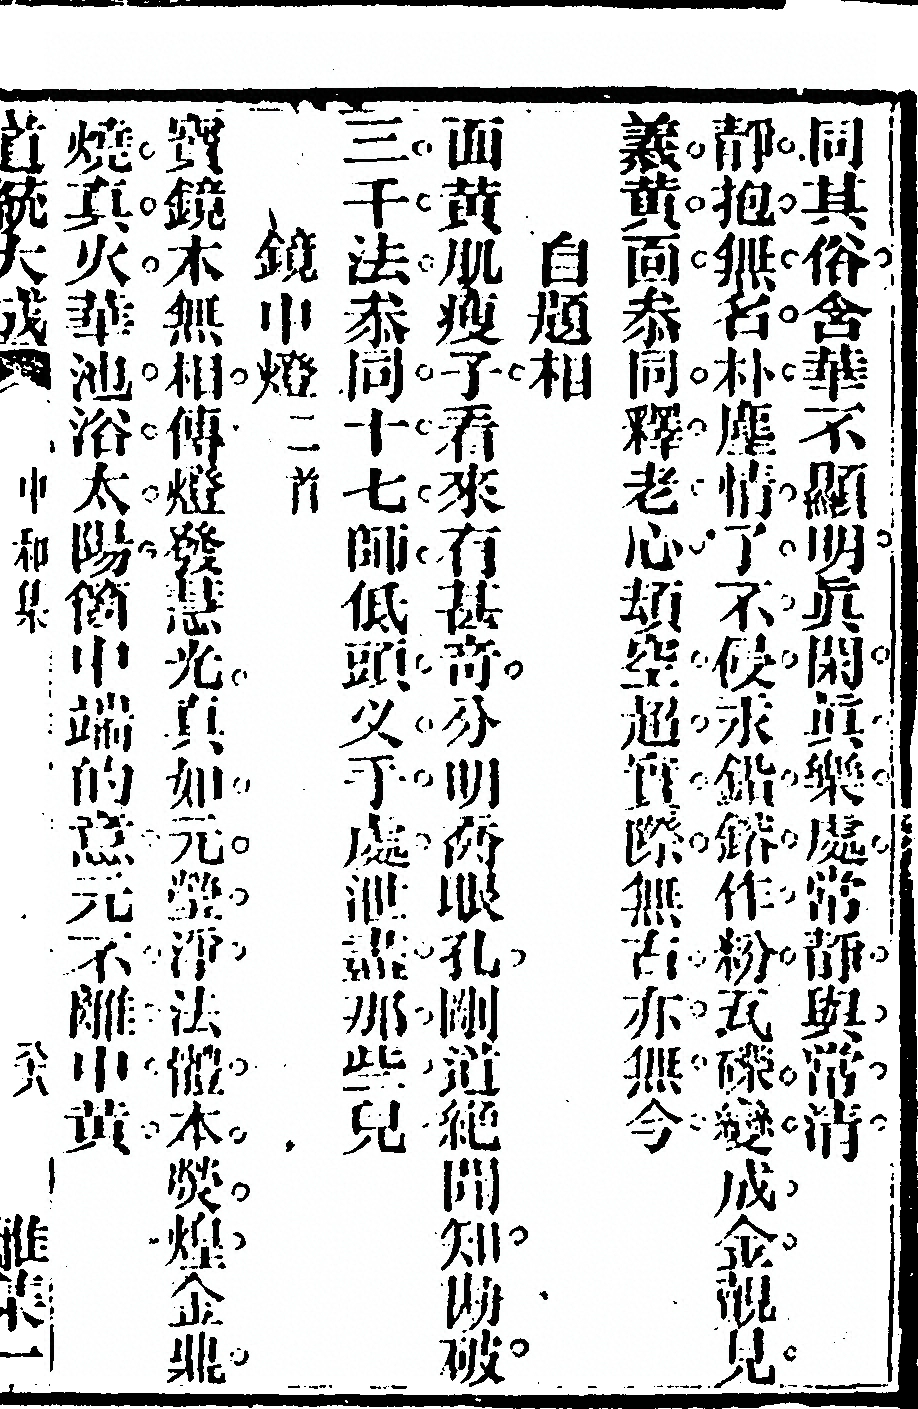 同其俗含華不顯明眞閑眞樂處常靜與常清
靜抱無名朴塵情了不侵汞鉛鎔作粉瓦礫變成金覿見
羲黄面叅同釋老心頓空超實際無古亦無今
自題相
面黄肌瘦子看來有甚奇分明兩眼孔剛道絶聞知勘破
三千法叅同十七師低頭义手處泄盡那些兒
鏡中燈二首
寶鏡本無相傳燈發慧光真如元瑩淨法體本熒煌金鼎
燒真火華池浴太陽箇中端的意元不離中黄
道統大成 中和集 六八 雅集一